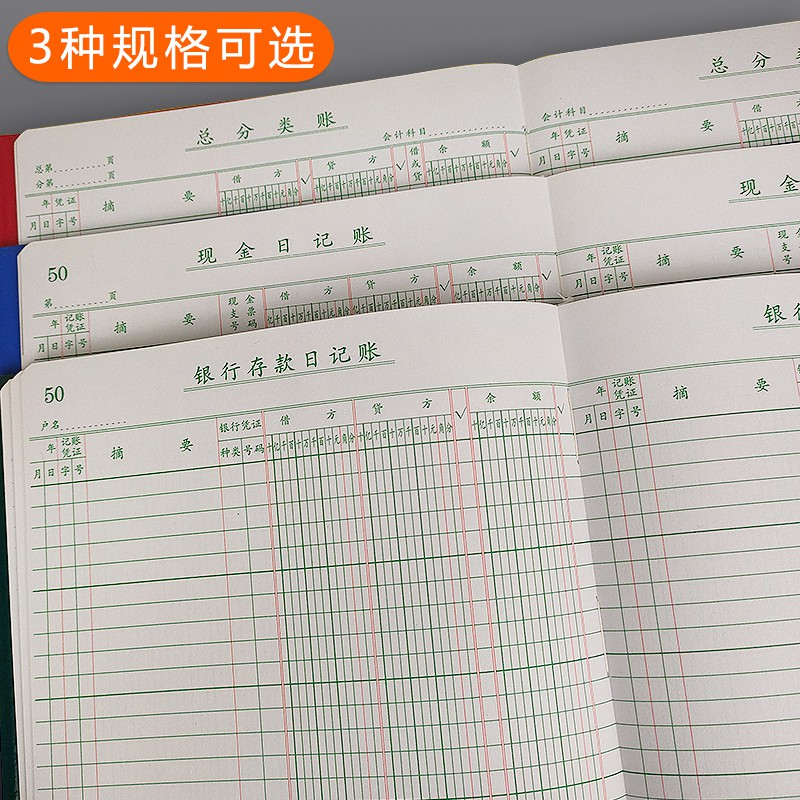 3种规格可选
总分类账
总分类
会计科目
会计科目
总第 页
分第 页
年 凭证 摘要 借方 √ 贷方 借或贷 余额 √
月 日 字 号 十亿千百十万千百十元角分 十亿千百十万千百十元角分 十亿千百十万千百十元角分
年 凭证 摘要 借方
月 日 字 号
50
现金日记账
现金
第 页
年 记账凭证 摘要 现金支票号码 借方 贷方 √ 余额 √
月 日 字 号 十亿千百十万千百十元角分 十亿千百十万千百十元角分 十亿千百十万千百十元角分
年 记账凭证 摘要
月 日 字 号
50
银行存款日记账
银行
户名
年 记账凭证 摘要 银行凭证 借方 贷方 √ 余额 √
月 日 字 号 种类 号码 十亿千百十万千百十元角分 十亿千百十万千百十元角分 十亿千百十万千百十元角分
年 记账凭证 摘要
月 日 字 号